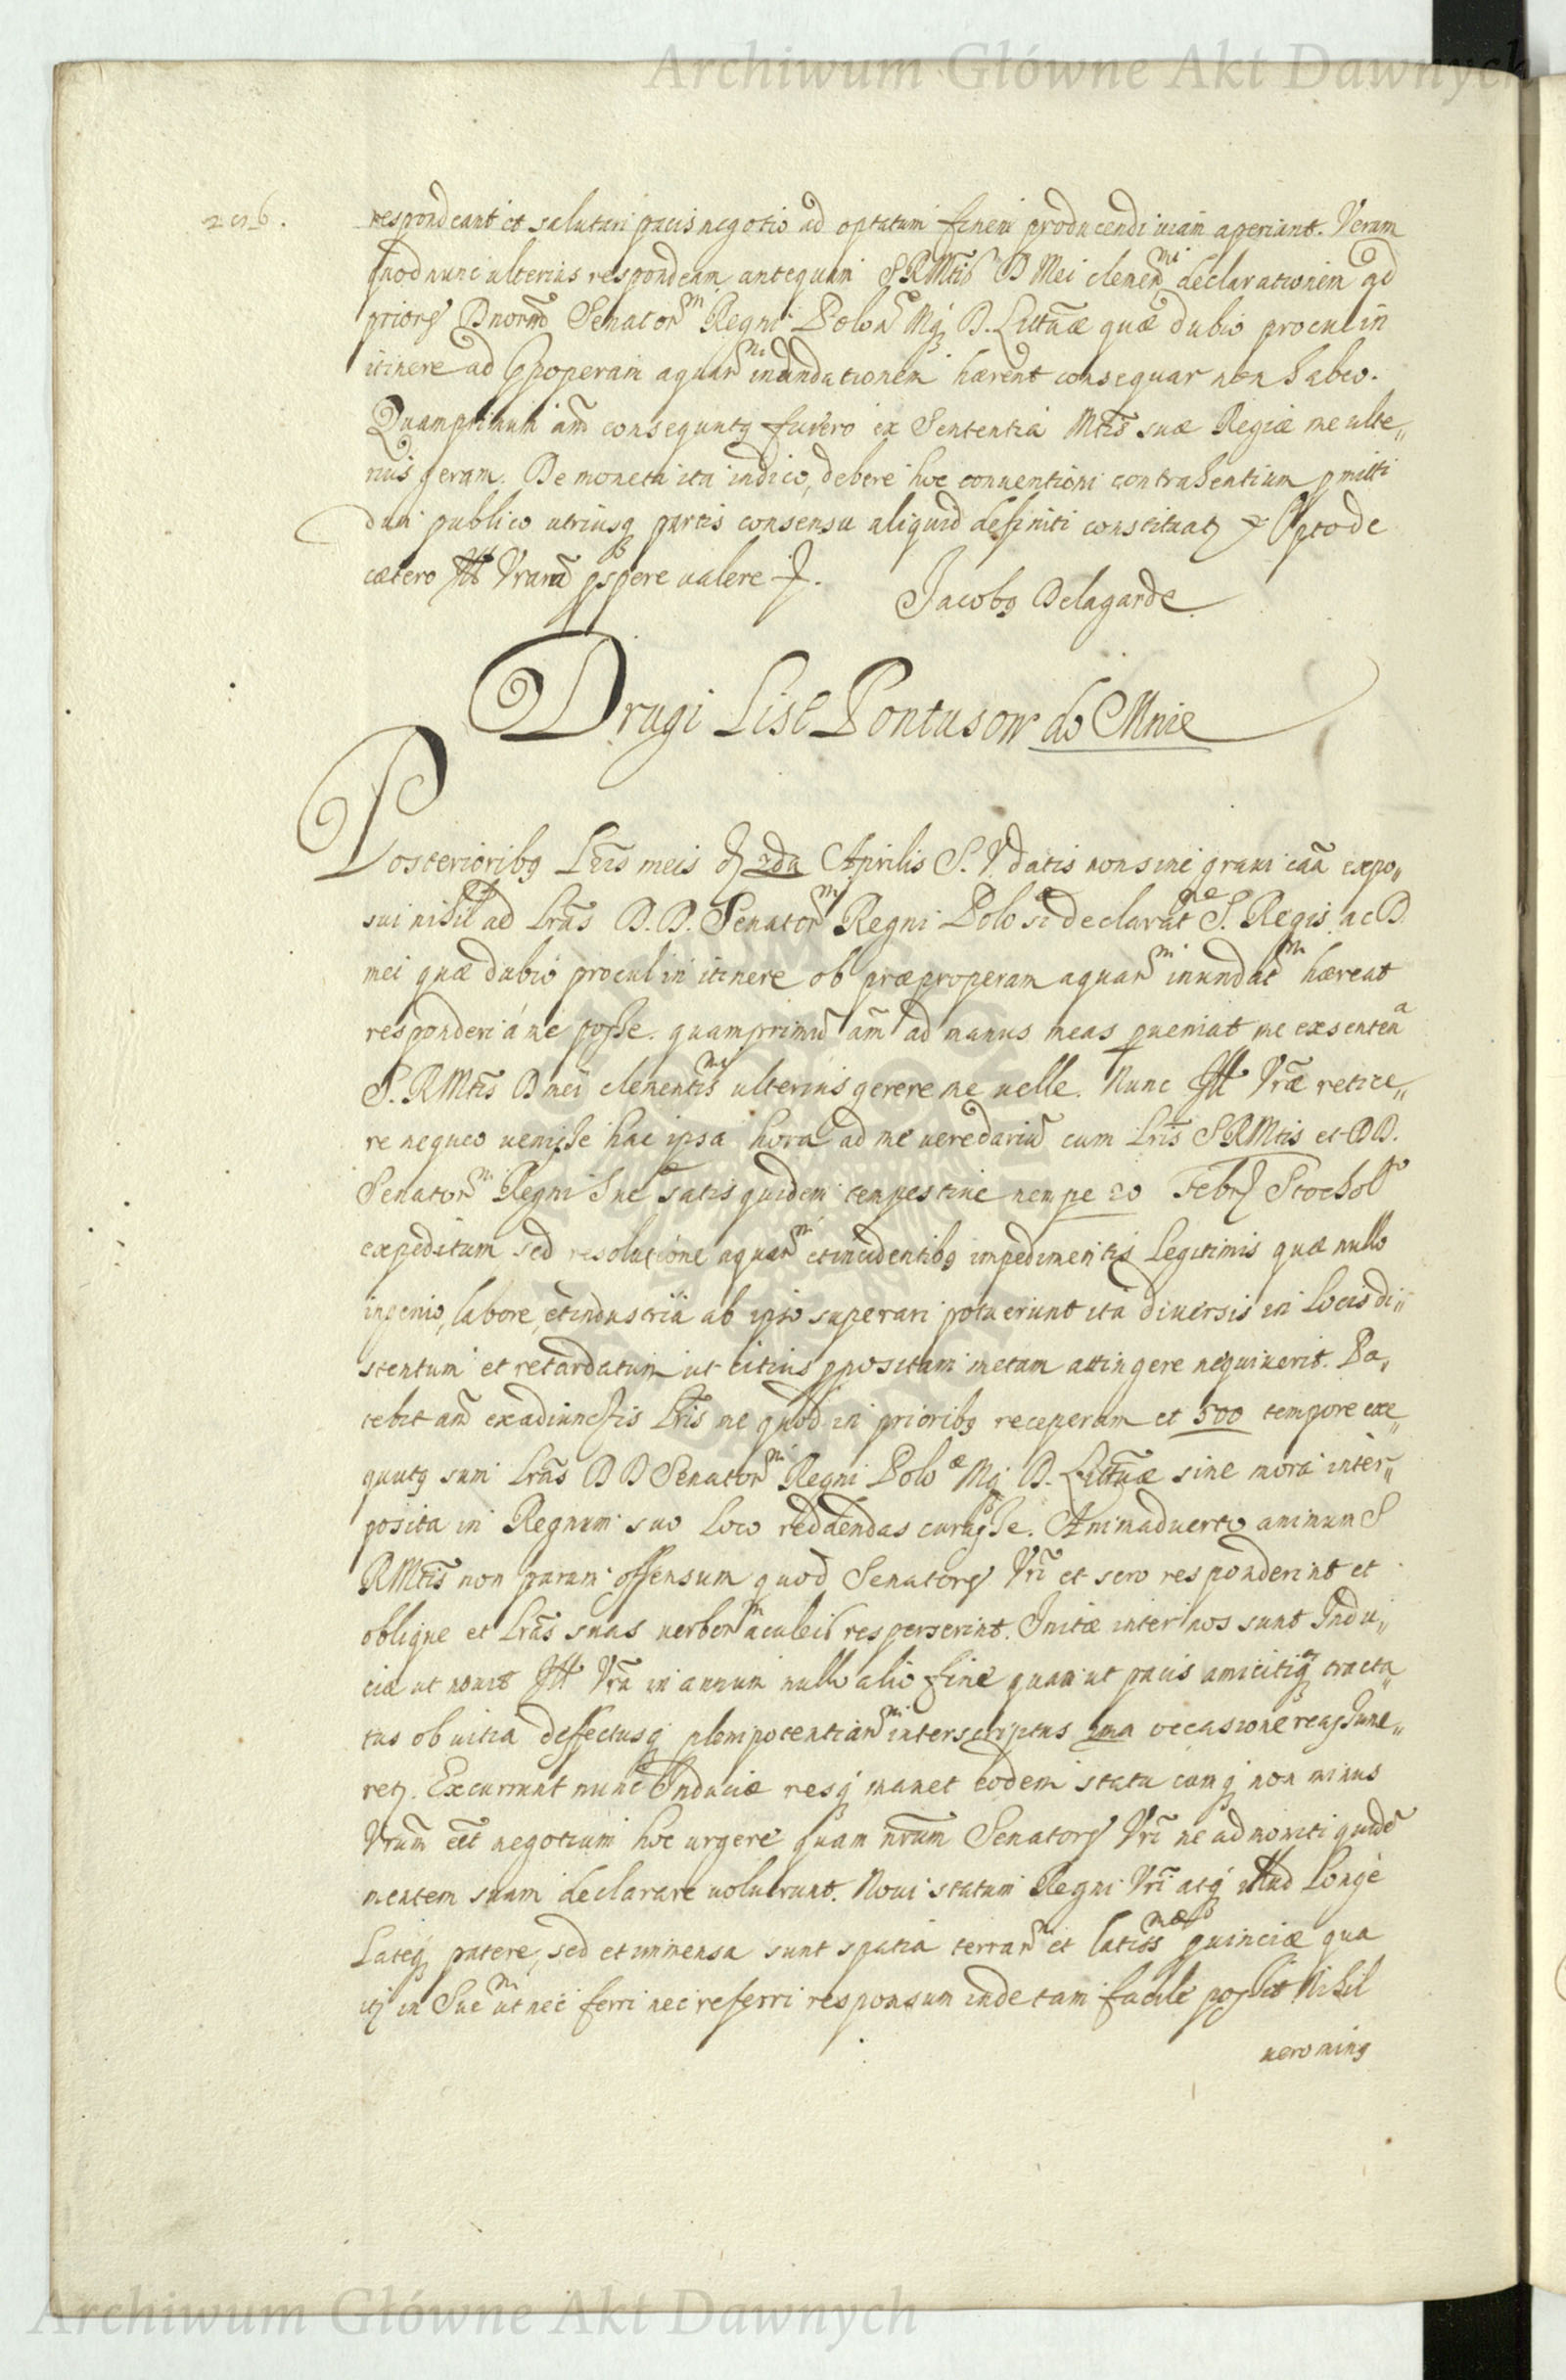 Archiwum Główne Akt Dawnych
256.
respondeant et salutari pacis negotio ad optatum finem producendi uiam aperiant. Verum
quod nunc ulterius respondeam antequam SRMtis D Mei clemen mi declarationem ad
priores Dnorum Senator m Regni Polon Mq D. Littuæ quæ dubio procul in
itinere ad ppoperam aquar m inundationem hærent consequar non habeo.
Quamprimum am consequutq fuero ex Sententia Mtis suæ Regiæ me ulte„
rius geram. De moneta ita indico, debere hoc conuentioni contrahentium pmitti
dum publico utriusq partis consensu aliquid definiti constituatq Opto de
cætero Ill Vram pspere ualere
Jacobq Delagarde
Drugi List Pontusow do Mnie
Posterioribq Lris meis 2da Aprilis S. V. datis non sine graui caa expo„
sui nihil ad Lras D. D. Senator m Regni Polo æ si declarat ne S. Regis ac D.
mei quæ dubio procul in itinere ob præproperam aquar m inundat m hæreat
responderi á me posse. quamprimu am ad manus meas pueniat me ex senten a
S. RMtis D mei clementis mi ulterius gerere me uelle. Nunc Ill Vræ retice„
re nequeo uenisse hac ipsa hora ad me ueredariu cum Lris SRMtis et DD.
Senator m Regni Sue satis quidem tempestiue nempe 20 Febr Stockol
expeditum sed resolutione aquar m et incidentibq impedimentis Legitimis quæ nullo
ingenio, labore, et industria ab ipso superari potuerunt ita diuersis in Locis di„
stentum et retardatum ut citius ppositam metam attingere nequiuerit. Pa„
tebit am ex adiunctis Lris me quod in prioribq receperam et 500 tempore exe„
quutq sum Lras D D Senator m Regni Polo æ Mq D. Littuæ sine mora inter„
posita in Regnum suo Loco reddendas curasse. Animaduerto animum S
RMtis non parum offensum quod Senatores Vri et sero responderint et
oblique et Lras suas uerbor m aculeis resperserint. Initæ inter nos sunt Indu„
ciæ ut nouit Ill Vra in annum nullo alio fine quam ut pacis amicitiæq tracta„
tus ob uitia deffectusq plenipotentiar m interscriptus una occasione reassume„
retq. Excurrunt nunc Induciæ resq manet eodem statu cumq non minus
Vrum eet negotium hoc urgere quam nrum Senatores Vri ne admoniti quide
mentem suam declarare uoluerunt. Noui statum Regni Vri atq illud Longè
Lateq patere, sed et immensa sunt spatia terrar m et latiss mæ puinciæ qua
itq in Sue m ut nec ferri nec referri responsum inde tam facile possit Nihil
uero minq
Archiwum Główne Akt Dawnych